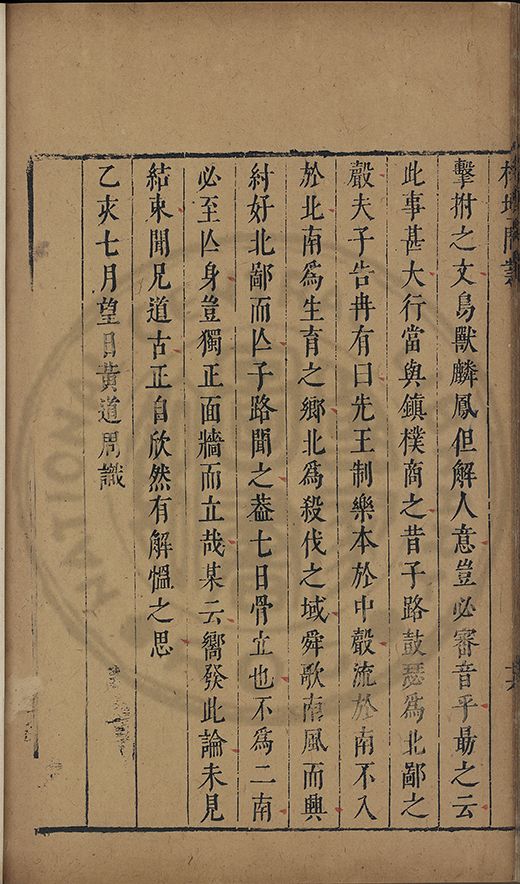 擊拊之文鳥獸麟鳳但解人意豈必審音乎最之云
此事甚大行當與鎮樸商之昔子路鼓瑟為北鄙之
聲夫子告冉有曰先王制樂本於中聲流於南不入
於北南為生育之鄉北為殺伐之域舜歌南風而興
紂好北鄙而亾子路聞之葢七日骨立也不為二南
必至亾身豈獨正面牆而立哉某云嚮發此論未見
結束聞兄道古正自欣然有解慍之思
乙亥七月望日黃道周識